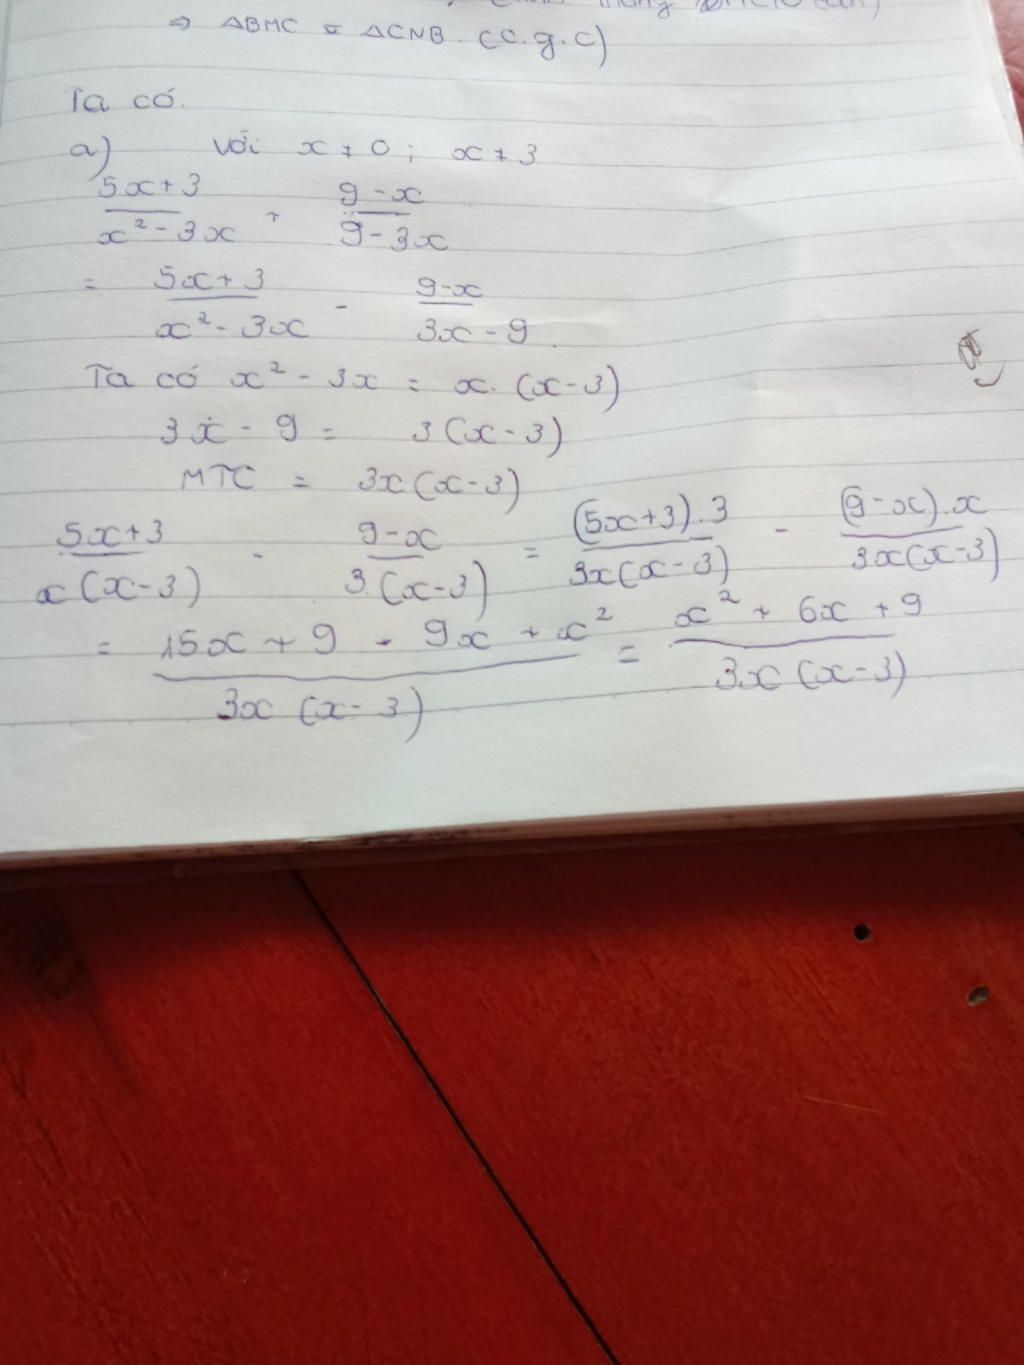 ⇒ ΔBMC = ΔCNB (c.g.c)
Ta có.
a) Với x ≠ 0 ; x ≠ 3
(5x + 3)/(x² - 3x) + (9 - x)/(9 - 3x)
= (5x + 3)/(x² - 3x) - (9 - x)/(3x - 9)
Ta có x² - 3x = x. (x - 3)
3x - 9 = 3(x - 3)
MTC = 3x(x - 3)
(5x + 3)/(x(x - 3)) - (9 - x)/(3(x - 3)) = ((5x + 3).3)/(3x(x - 3)) - ((9 - x).x)/(3x(x - 3))
= (15x + 9 - 9x + x²)/(3x(x - 3)) = (x² + 6x + 9)/(3x(x - 3))